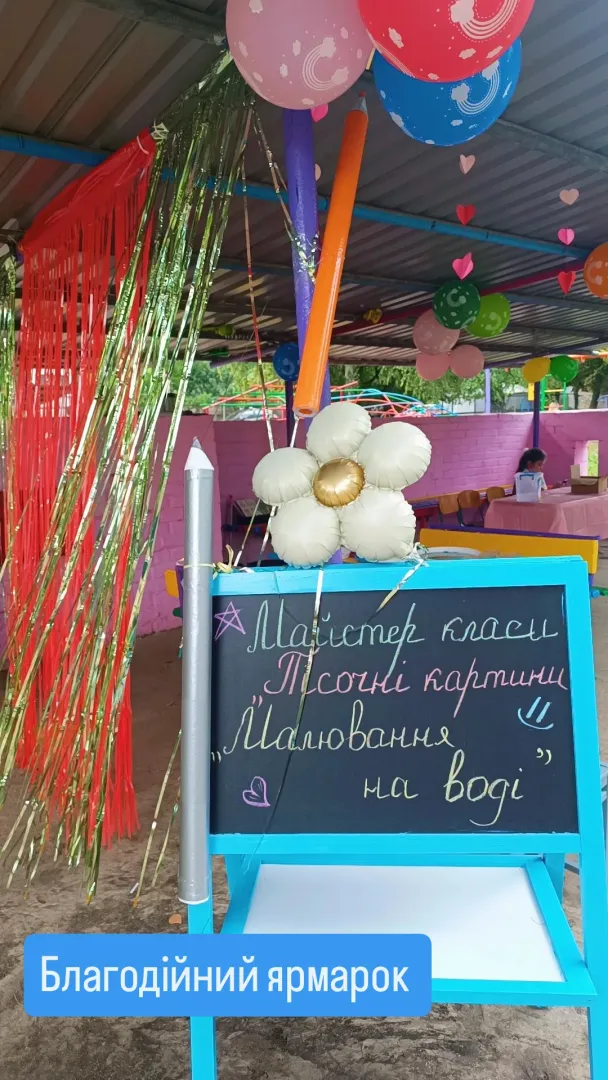 Майстер класи
"Пісочні картини
„Малювання
на воді”
Благодійний ярмарок